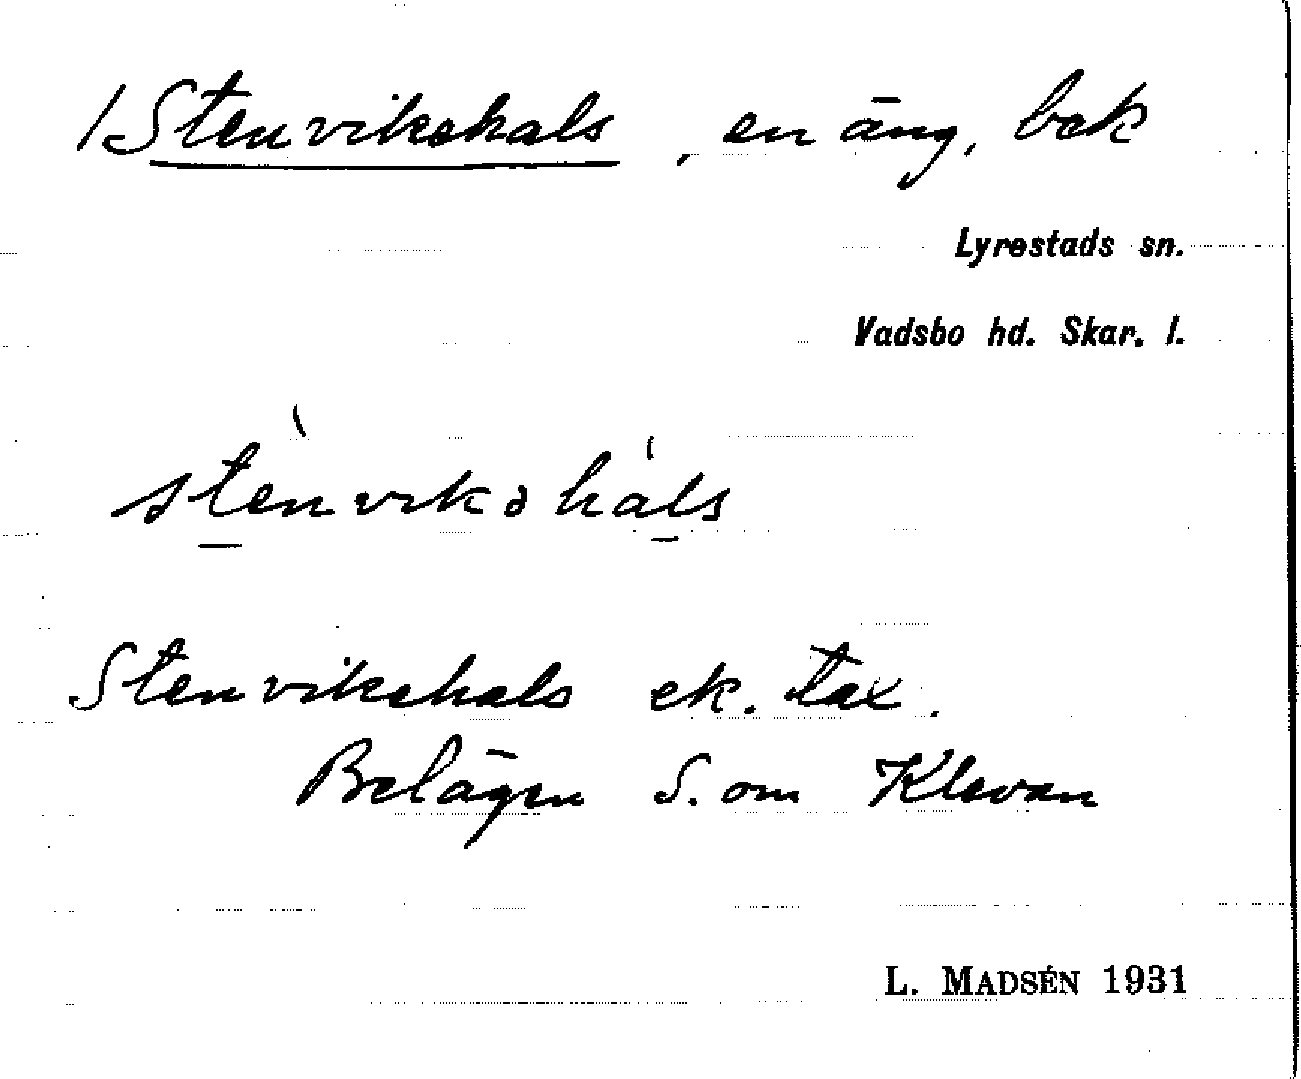 /Stenvikehals, en äng, bek
Lyrestads sn.
Vadsbo hd. Skar. l.
stènvikəháls
Stenvikehals ek. tax.
Belägen S. om Klevan
L. MADSÉN 1931